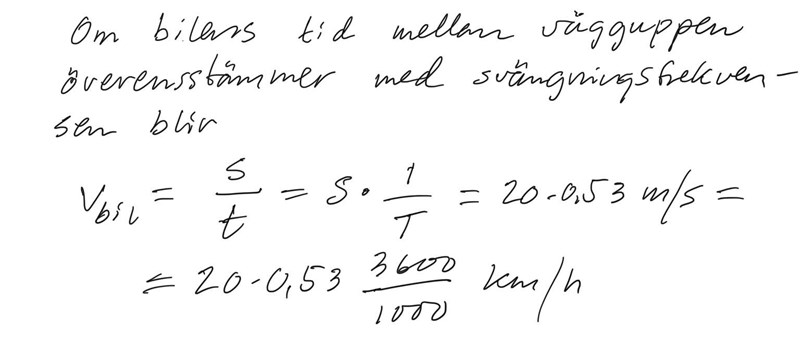 Om bilens tid mellan vägguppen
överensstämmer med svängningsfrekven-
sen blir
v_bil = s/t = s · 1/T = 20 · 0,53 m/s =
= 20 · 0,53 3600/1000 km/h